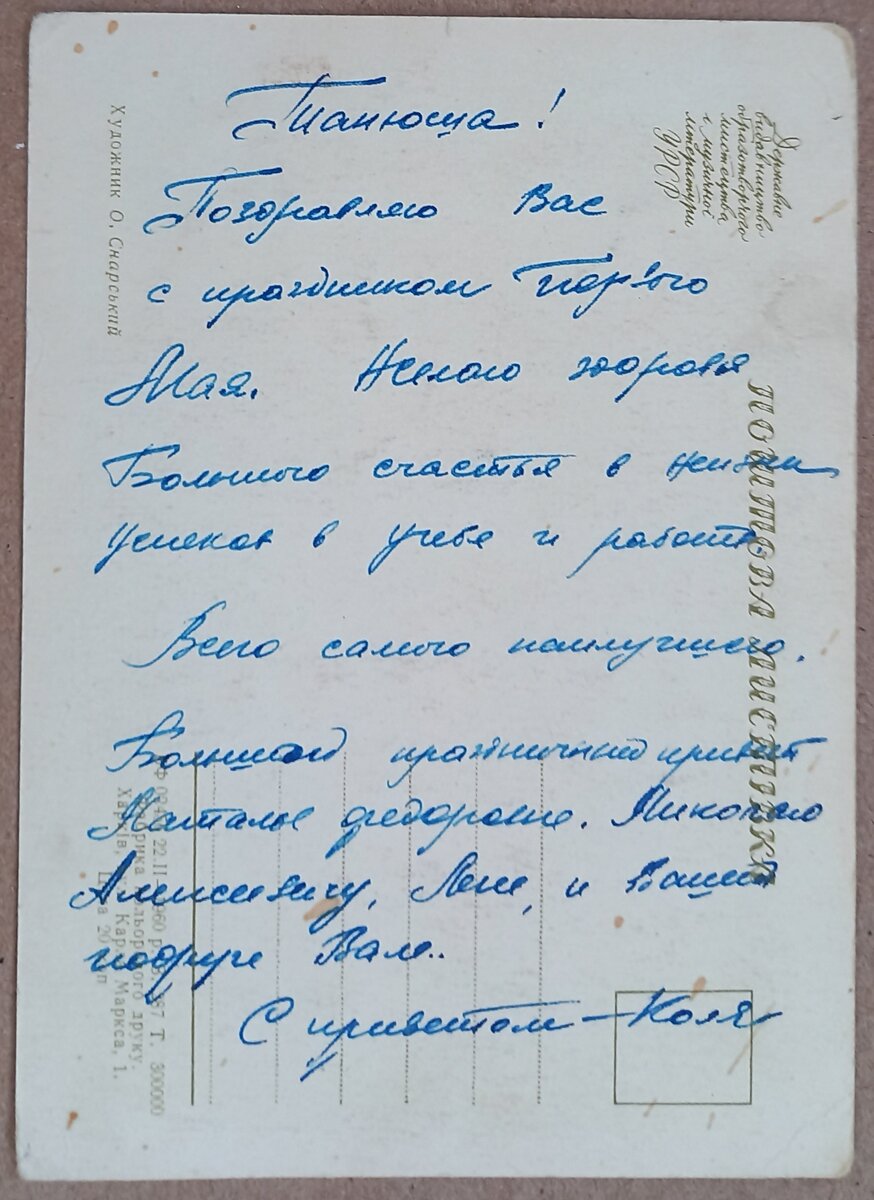 Танюша!
Поздравляю Вас
с праздником Пер'ого
Мая. Желаю здоровья
Большого счастья в жизни
Успехов в учебе и работе.
Всего самого наилучшего.
Большой праздничный привет
Наталье Федоровне. Николаю
Алексеевичу, Лене, и Вашей
подруге Вале..
С приветом – Коля
Художник О. Снарський
Державне
видавництво
образотворчого
мистецтва
і музичної
літератури
УРСР
ПОШТОВА ЛИСТІВКА
22.II 1960 р. 87 Т. 300000
фабрика кольорового друку.
Харків, Карла Маркса, 1.
Ціна 20 коп